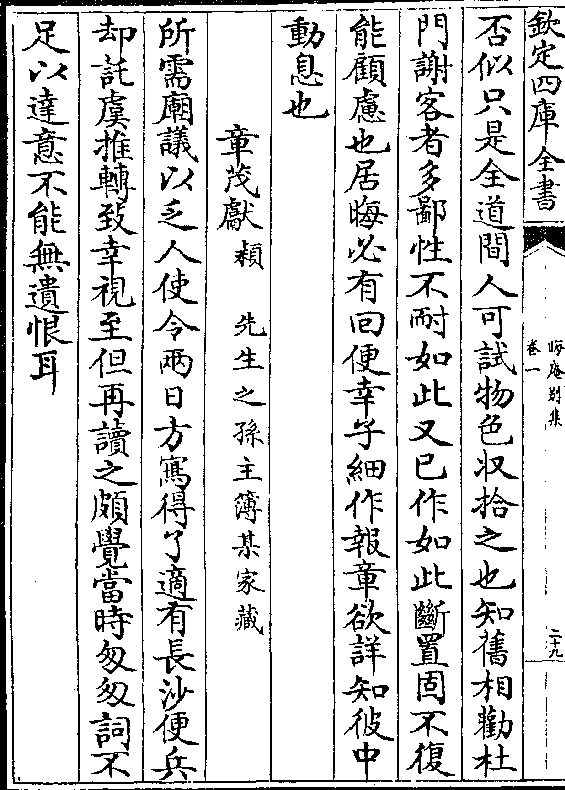 欽定四庫全書
晦庵别集
卷一
二十九
否似只是全道間人可試物色收拾之也知舊相勸杜
門謝客者多鄙性不耐如此又已作如此斷置固不復
能顧慮也居晦必有回便幸子細作報章欲詳知彼中
動息也
章茂獻 頴 先生之孫主簿某家藏
所需廟議以乏人使令兩日方寫得了適有長沙便兵
却託虞推轉致幸視至但再讀之頗覺當時匆匆詞不
足以達意不能無遺恨耳